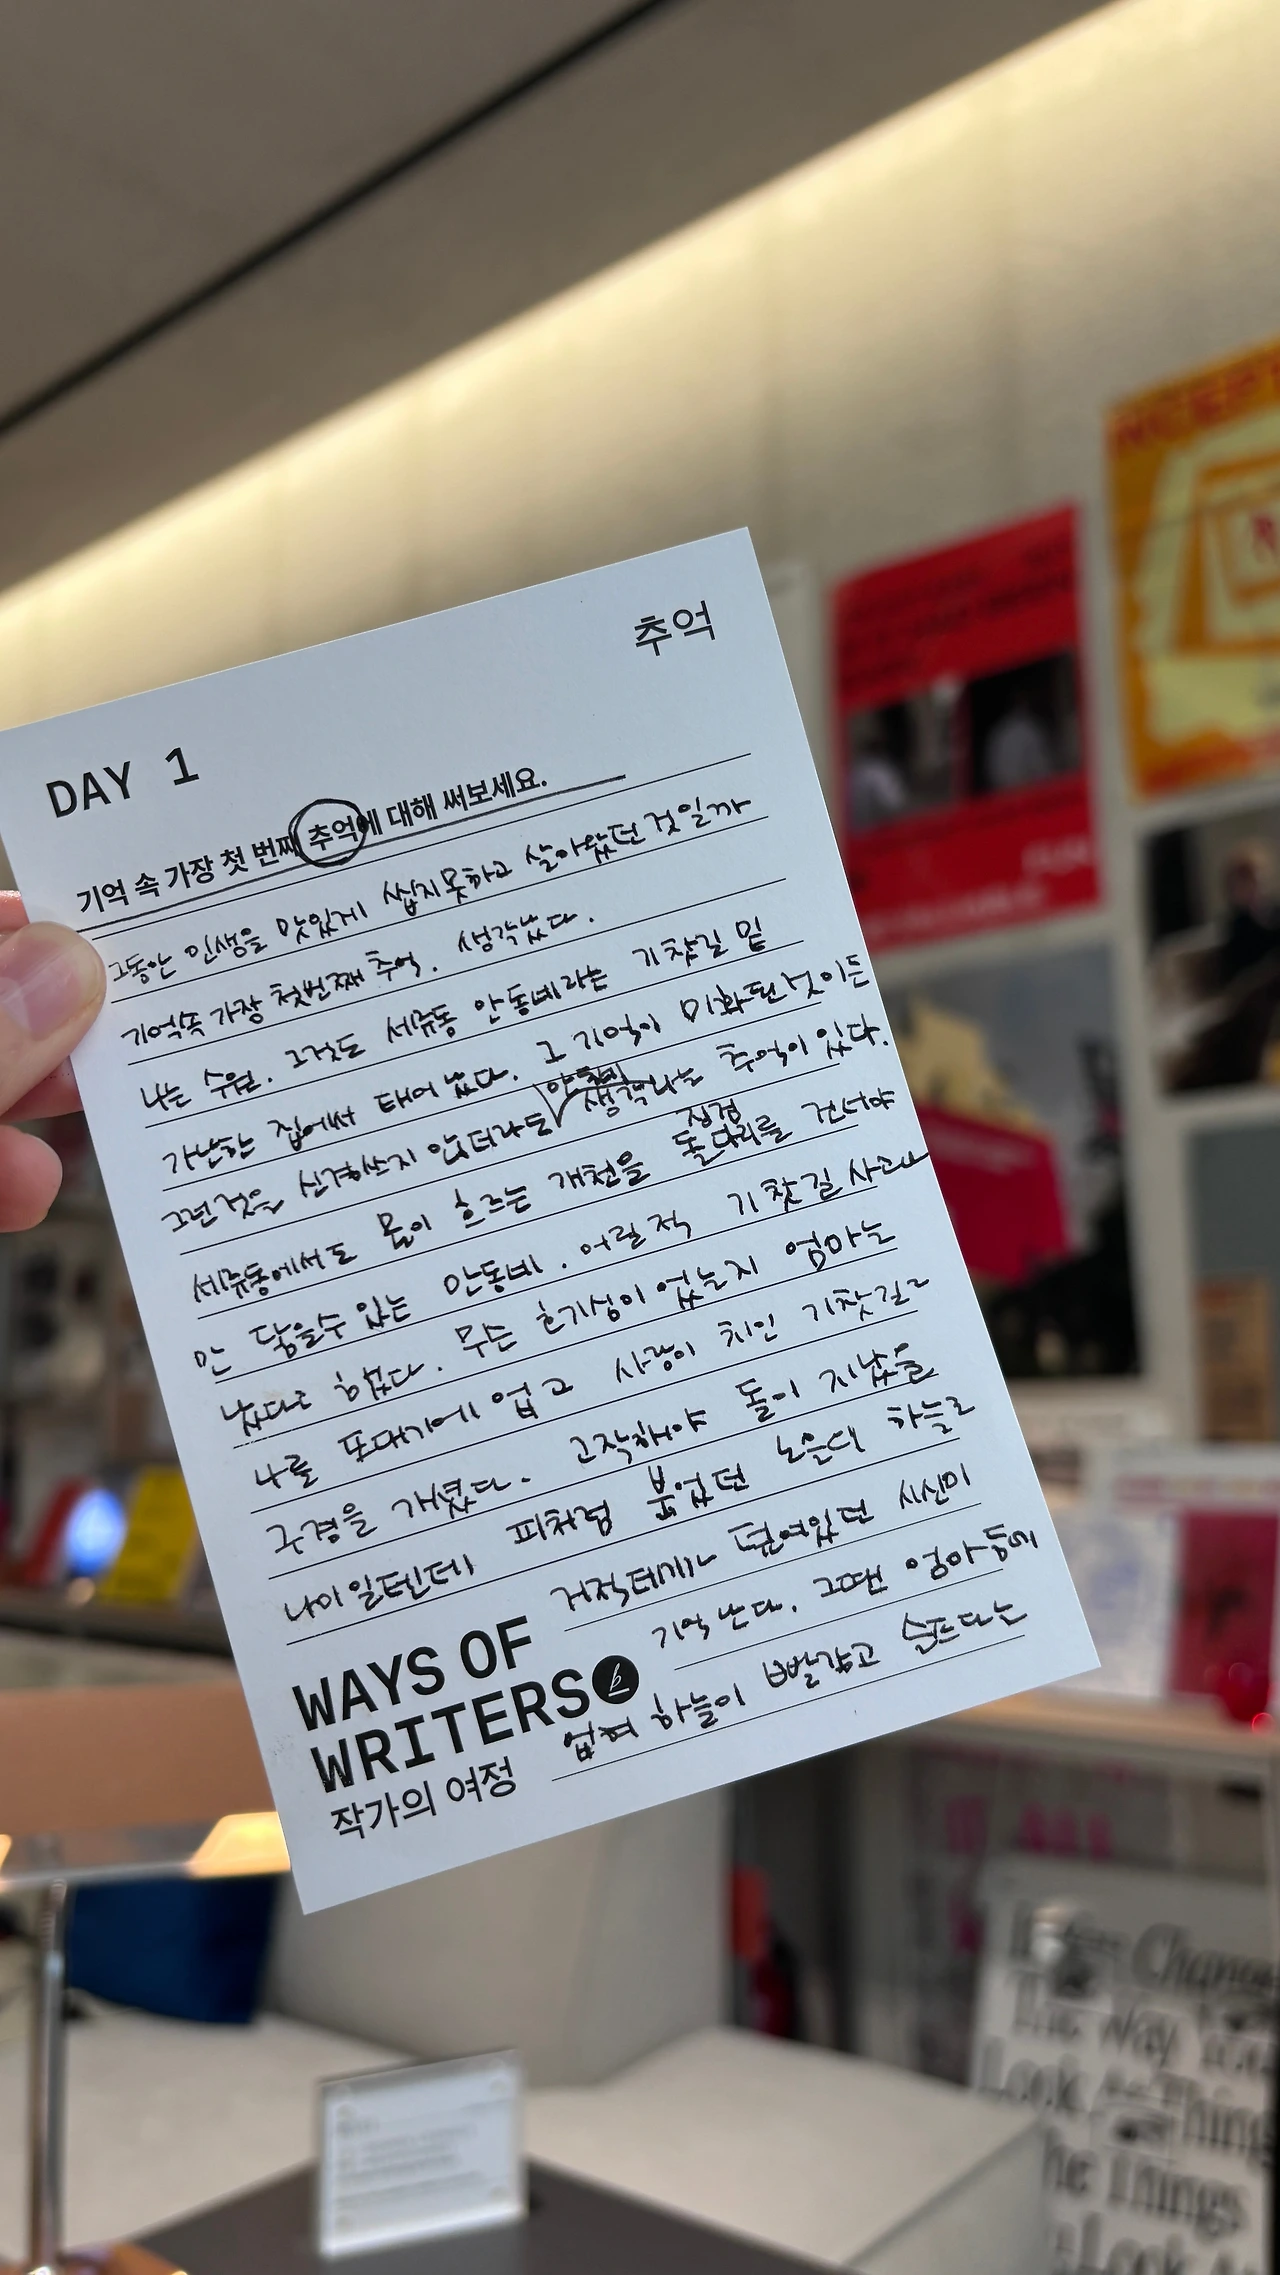 추억
DAY 1
기억 속 가장 첫 번째 추억에 대해 써보세요.
그동안 인생을 맛있게 씹지못하고 살아왔던 것일까
기억속 가장 첫번째 추억. 생각났다.
나는 수원. 그것도 세류동 안동네라는 기찻길 밑
가난한 집에서 태어났다. 그 기억이 미화된것이든
그런것을 신경쓰지 않더라도 생각나는 추억이 있다.
징검
세류동에서도 물이 흐르는 개천을 돌다리를 건너야
만 닿을수 있는 안동네. 어릴적 기찻길 사고
났다고 했다. 무슨 호기심이 었는지 엄마는
나를 포대기에 업고 사람이 치인 기찻길
구경을 가셨다. 고작해야 돌이 지났을
나이일텐데 피처럼 붉었던 노을과 하늘
거적데기가 덮여있던 시신이
기억난다. 그땐 엄마등에
업혀 하늘이 빨갛고 슬프다는
WAYS OF
WRITERS
작가의 여정
Change
The Way You
Look At Things
The Things
Look